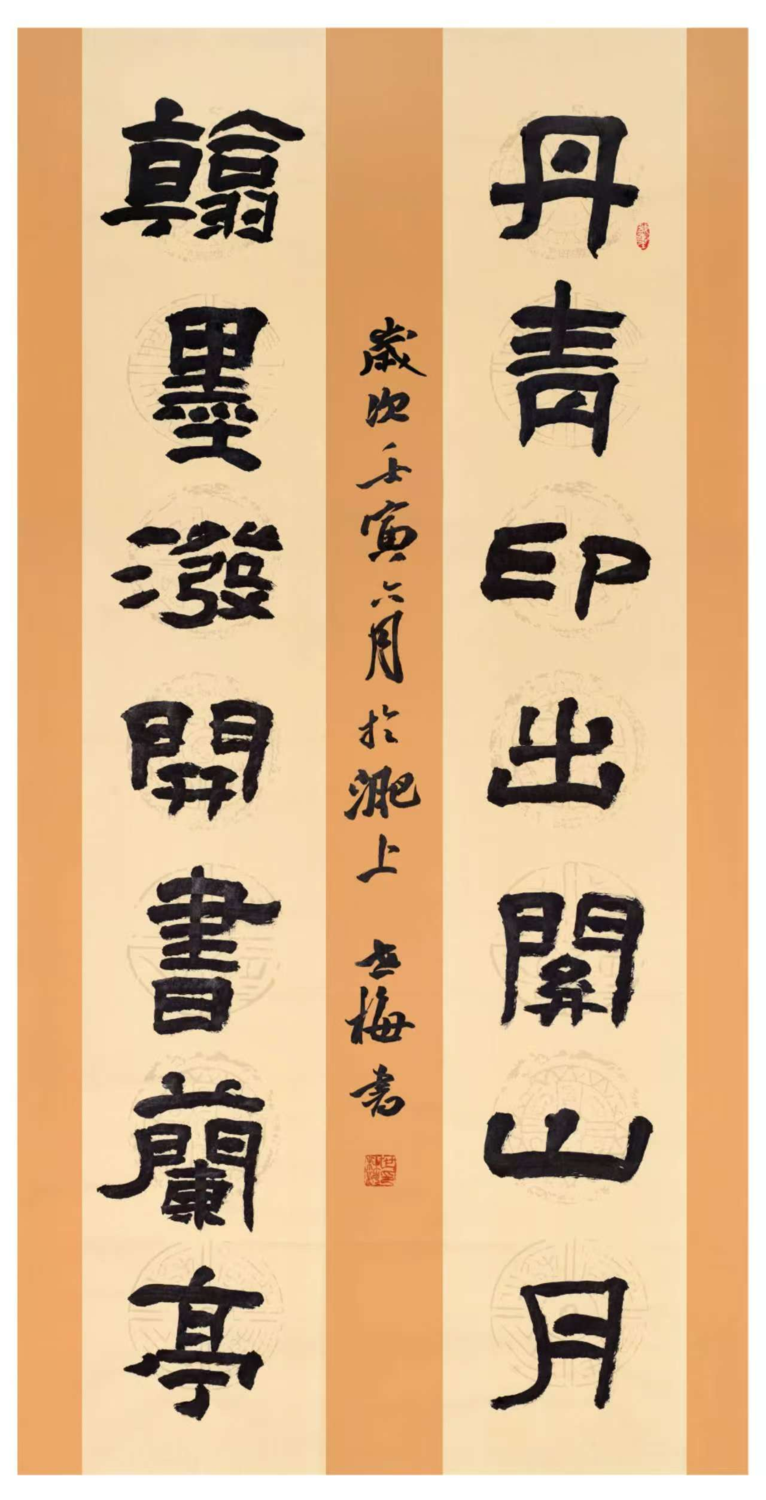 丹青印出關山月
翰墨潑開書蘭亭
歲次壬寅六月於淝上 世梅書